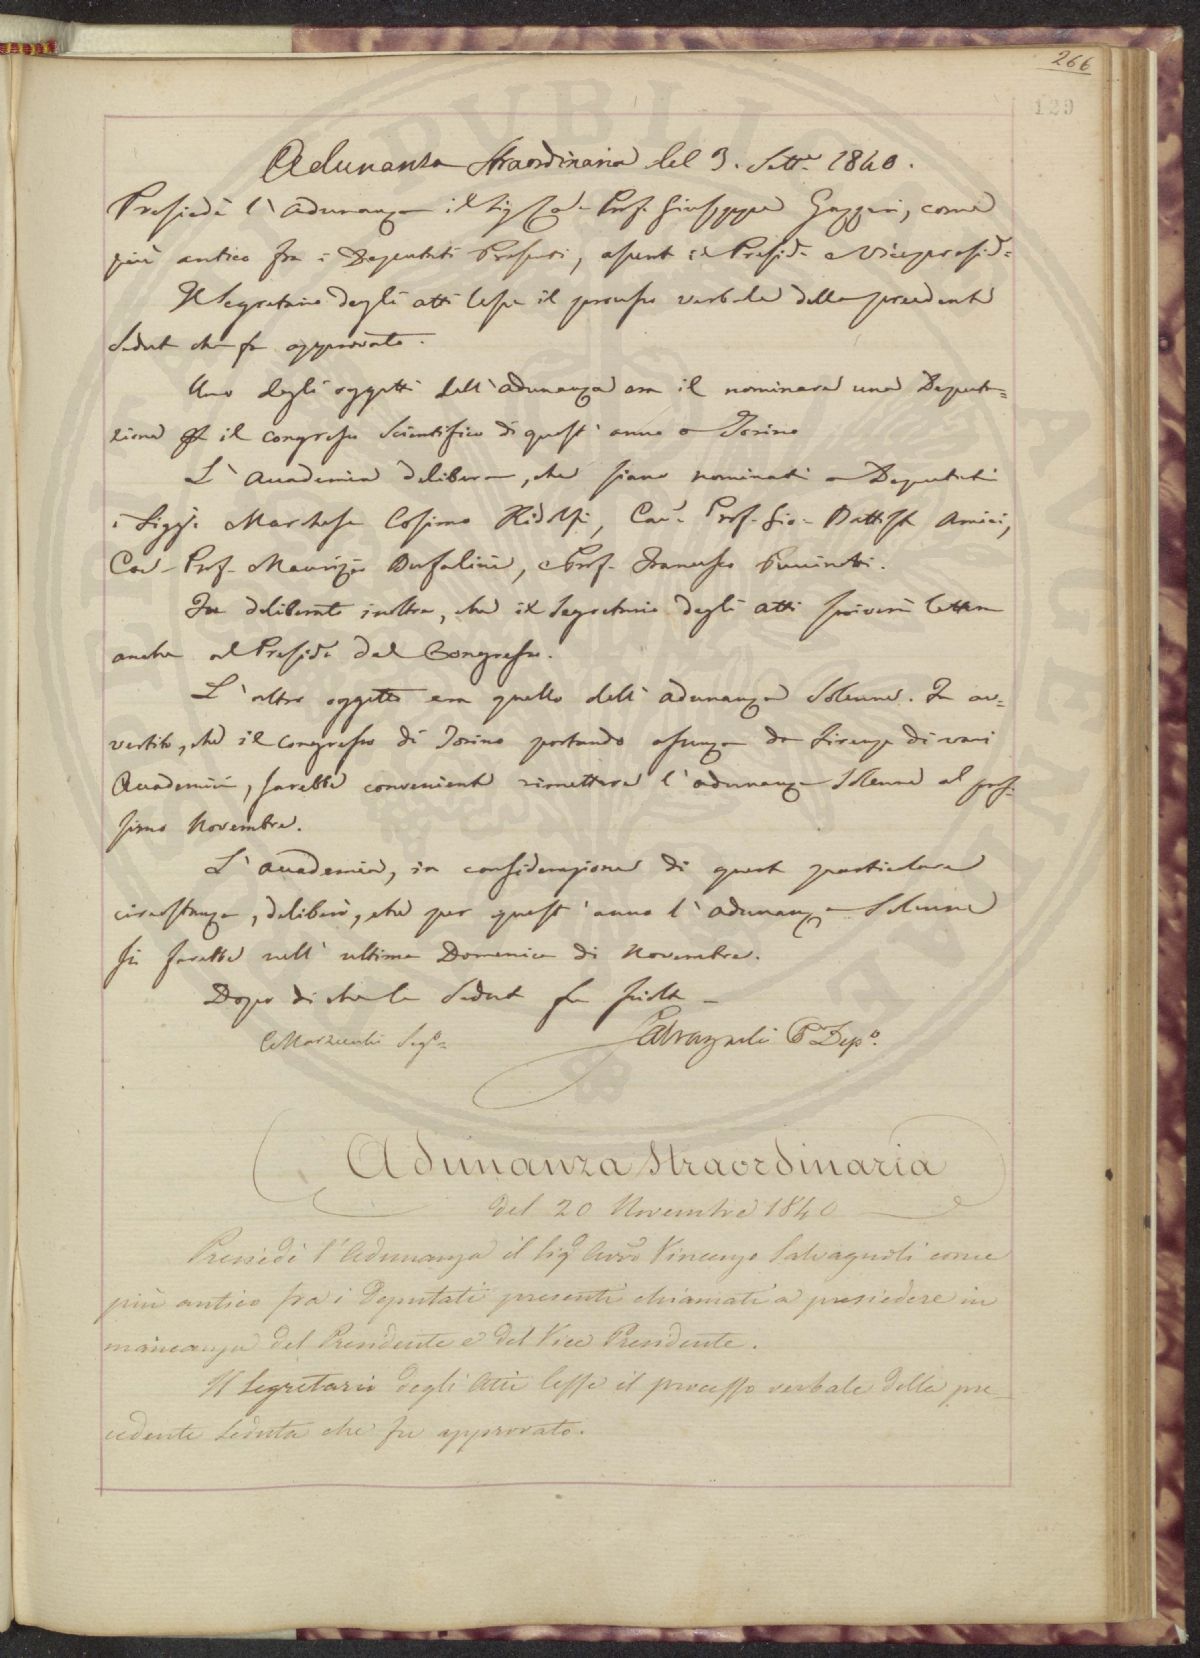 266
129
Adunanza straordinaria del 3. Sett.e 1840.
Presiedè l'adunanza il Sig. Cav. Prof. Giuseppe Gazzeri, come
più antico fra i Deputati Presenti, assenti il Presid.e e Vicepresid.e
Il Segretario degli atti lesse il processo verbale della precedente
Seduta che fu approvato.
Uno degli oggetti dell'adunanza era il nominare una Deputa=
zione per il congresso scientifico di quest'anno a Torino
L'Accademia deliberò, che siano nominati a Deputati
i Sigg.i Marchese Cosimo Ridolfi, Cav.e Prof. Gio. Battista Amici,
Cav. Prof. Maurizio Bufalini, e Prof. Francesco Puccinotti.
Fu deliberato inoltre, che il Segretario degli atti scriverà lettera
anche al Preside del Congresso.
L'altro oggetto era quello dell'adunanza Solenne. Fu av=
vertito, che il congresso di Torino portando assenza da Firenze di vari
Accademici, sarebbe conveniente rimettere l'adunanza Solenne al pros=
simo Novembre.
L'accademia, in considerazione di questa particolare
circostanza, deliberò, che per quest'anno l'adunanza Solenne
si farebbe nell'ultima Domenica di Novembre.
Dopo di che la Seduta fu sciolta
C. Marzucchi Seg.o
Salvagnoli P. Dep.o
Adunanza straordinaria
del 20 Novembre 1840
Presiedè l'Adunanza il Sig.e Avv.o Vincenzo Salvagnoli come
più antico fra i Deputati presenti chiamati a presiedere in
mancanza del Presidente e del Vice Presidente.
Il Segretario degli Atti lesse il processo verbale della pre=
cedente Seduta che fu approvato.